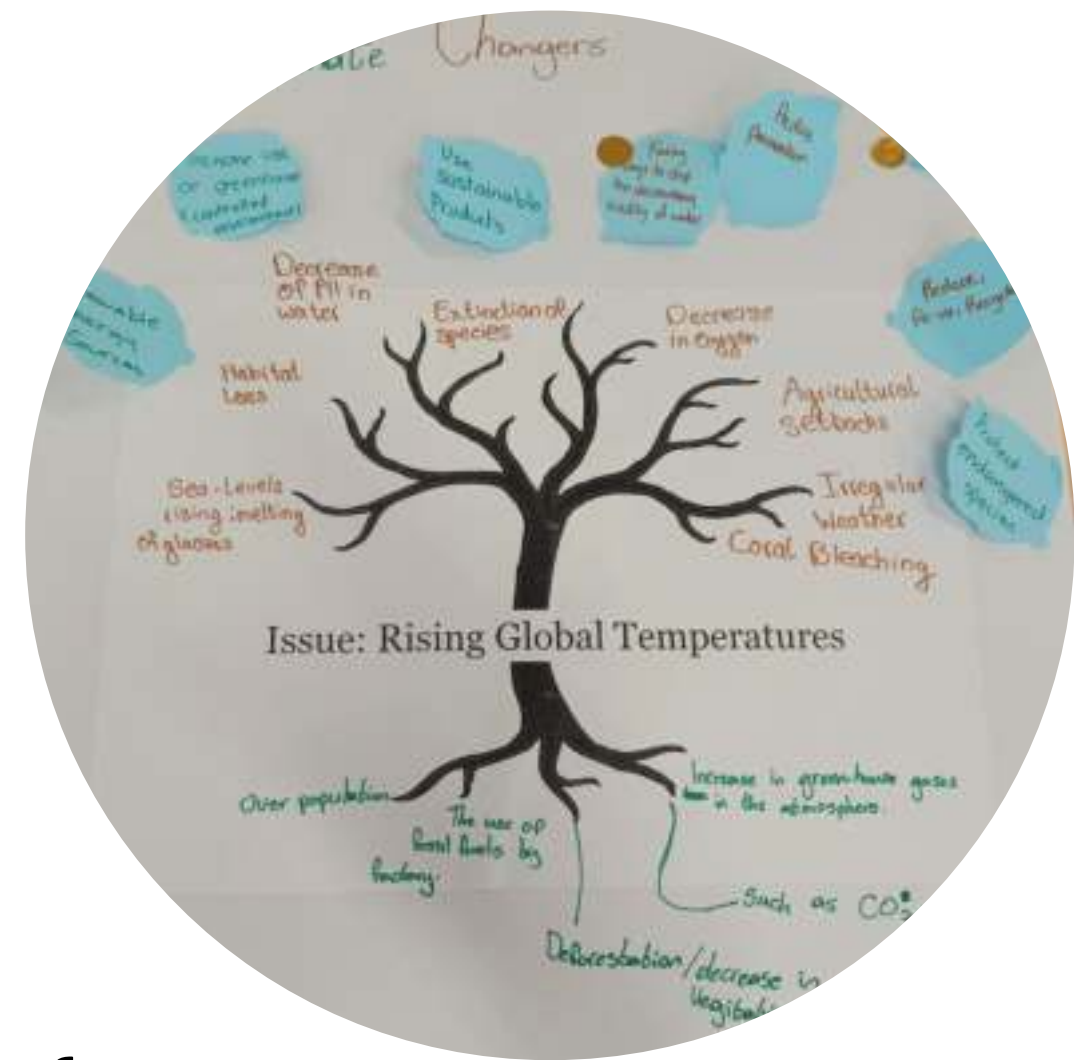 Changers
or greenhouse
controlled
Use
Sustainable
Products
ways to stop
the decreasing
quality of water
Reduce,
Re-use, Recycle
Protect
endangered
Species
Decrease
of PH in
water
Extinction of
species
Decrease
in Oxygen
Habitat
Loss
Agricultural
setbacks
Sea-Levels
rising, melting
of
Irregular
Weather
Coral Bleaching
Issue: Rising Global Temperatures
Over population
The use of
fossil fuels by
factory.
Increase in greenhouse gases
in the atmosphere
Such as CO2
Deforestation/decrease in